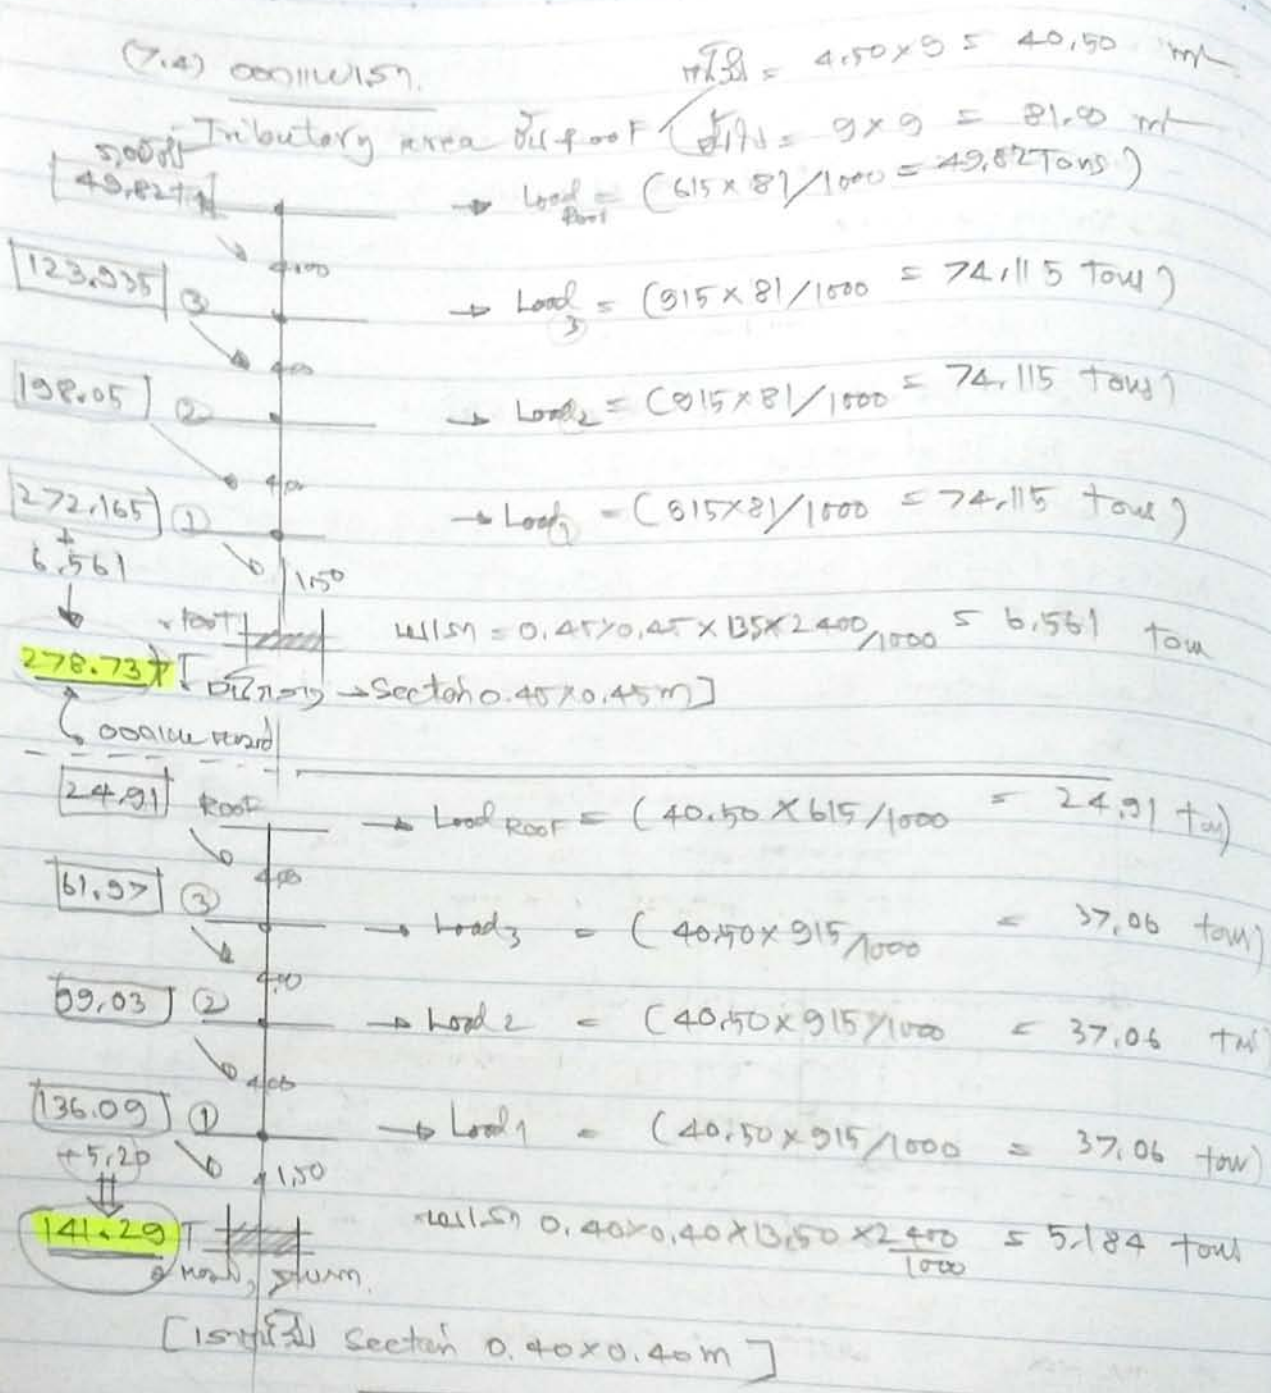 (7.4) ออกแบบเสา
= 4.50 x 9 = 40.50 m²
Tributary area ชั้น Roof = 9 x 9 = 81.00 m²
49.82 T → Load Roof = (615 x 81/1000 = 49.82 Tons)
4.00
123.935 ③ → Load 3 = (915 x 81/1000 = 74.115 Tons)
4.00
198.05 ② → Load 2 = (915 x 81/1000 = 74.115 tons)
4.00
272.165 ① → Load 1 = (915 x 81/1000 = 74.115 tons)
+
6.561
1.50
= 0.45 x 0.45 x 13.5 x 2400/1000 = 6.561 ton
278.73 T → Section 0.45 x 0.45 m]
24.91 Roof → Load ROOF = (40.50 x 615/1000 = 24.91 ton)
4.00
61.97 ③ → Load 3 = (40.50 x 915/1000 = 37.06 tons)
4.00
99.03 ② → Load 2 = (40.50 x 915/1000 = 37.06
4.00
136.09 ① → Load 1 = (40.50 x 915/1000 = 37.06 ton)
+5.20
1.50
141.29 T 0.40 x 0.40 x 13.50 x 2400/1000 = 5.184 tons
Section 0.40 x 0.40 m]